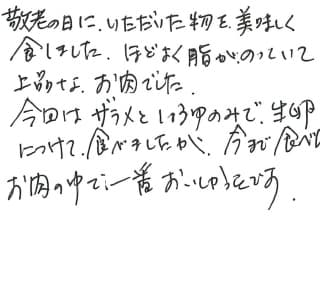 敬老の日に、いただいた物を美味しく
食しました。ほどよく脂がのっていて
上品な、お肉でした。
今回はザラメと しょうゆのみで、生卵
につけて、食べましたが、今まで食べた
お肉の中で、一番 おいしかったです。